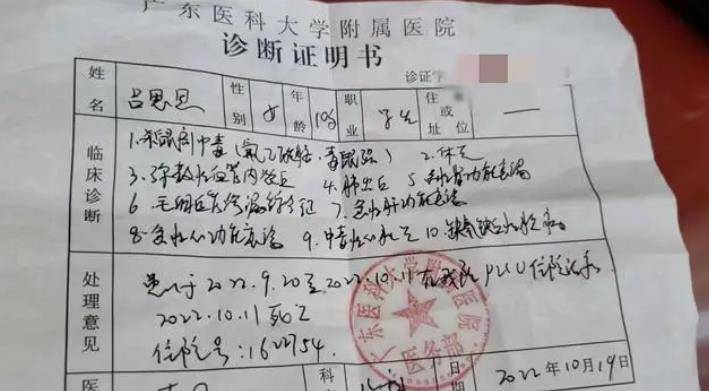 广东医科大学附属医院
诊断证明书
诊证字
姓名 吕思恩 性别 女 年龄 10岁 职业 学生 住或位址 —
临床诊断
1.杀鼠剂中毒(氟乙酰胺、毒鼠强) 2.休克
3.弥散性血管内凝血 4.肺出血 5.急性肾功能衰竭
6.毛细血管渗漏综合征 7.急性肝功能衰竭
8.急性心功能衰竭 9.中毒性心肌炎 10.缺氧缺血性脑病
处理意见
患儿于2022.9.20至2022.10.11在我院PICU住院治疗
2022.10.11死亡
住院号:1622754.
广东医科大学附属医院
医务部
医 科
2022年10月19日